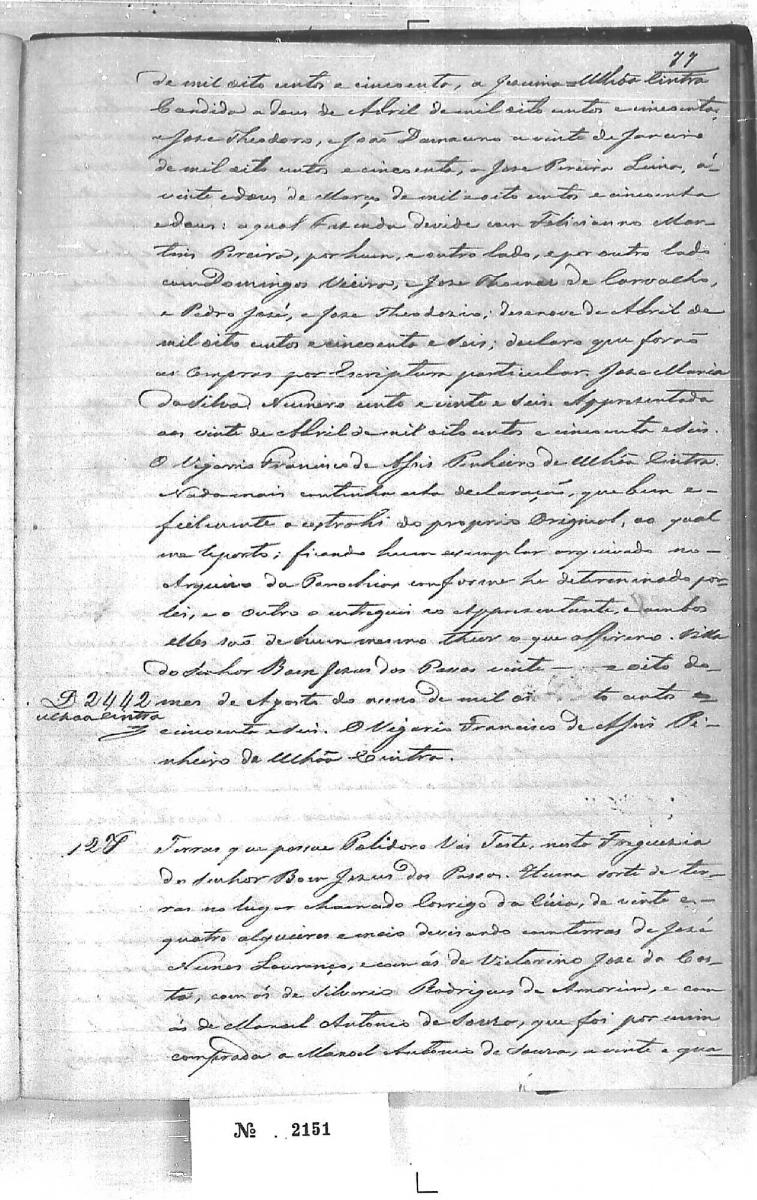 77
Ulhôa Cintra
de mil oito centos e cincoenta, a Jesuina
Candida a dous de Abril de mil oito centos e cincoenta,
e Jose Theodoro, e João Damaceno a vinte de Janeiro
de mil oito centos e cincoenta, a Jose Pereira Lima, á
vinte e dous de Março de mil e oito centos e cincoenta
e dous: a qual Fazenda devide com Felicianno Mar-
tins Pereira, por hum, e outro lado, e por outro lado
com Domingos Vieira, e Jose Thomes de Carvalho,
e Pedro José, e Jose Theodozio; desenove de Abril de
mil oito centos e cincoenta e seis; declaro que forão
as Compras por Escriptura particular. Jose Maria
da Silva. Numero cento e vinte e seis. Appresentada
aos vinte de Abril de mil oito centos e cincoenta e seis.
O Vigario Francisco de Assis Pinheiro de Ulhôa Cintra.
Nada mais continha esta declaração, que bem e
fielmente a extrahi do proprio Original, ao qual
me reporto; ficando hum exemplar arquivado no
Arquivo da Parochia conforme he determinado por
lei, e o outro o entreguei ao Appresentante, e ambos
elles são de hum mesmo theor o que affirmo. Villa
do Senhor Bom Jezus dos Passos vinte e oito do
D 2442 mes de Agosto do anno de mil oi to centos e
Ulhoa Cintra cincoenta e seis. O Vigario Francisco de Assis Pi-
nheiro de Ulhôa Cintra.
127 Terras que possue Polidoro Vás Teste, nesta Freguezia
do Senhor Bom Jezus dos Passos. Huma sorte de ter-
ras no lugar chamado Corrigo da Cúia, de vinte e
quatro alqueires e meio devisando com terras de José
Nunes Lourenço, e com ás de Victorino Jose da Cos-
ta, com ás de Silverio Rodrigues de Amorim, e com
ás de Manoel Antonio de Souza, que foi por mim
comprada a Manoel Antonio de Souza, a vinte e qua-
Nº . 2151